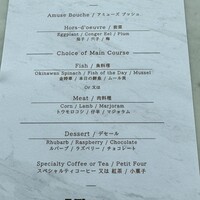 Amuse Bouche / アミューズ ブッシュ
Hors-d'oeuvre / 前菜
Eggplant / Conger Eel / Plum
茄子 / 穴子 / 梅
Choice of Main Course
Fish / 魚料理
Okinawan Spinach / Fish of the Day / Mussel
金時草 / 本日の鮮魚 / ムール貝
Or 又は
Meat / 肉料理
Corn / Lamb / Marjoram
トウモロコシ / 仔羊 / マジョラム
Dessert / デセール
Rhubarb / Raspberry / Chocolate
ルバーブ / ラズベリー / チョコレート
Specialty Coffee or Tea / Petit Four
スペシャルティコーヒー 又は 紅茶 / 小菓子